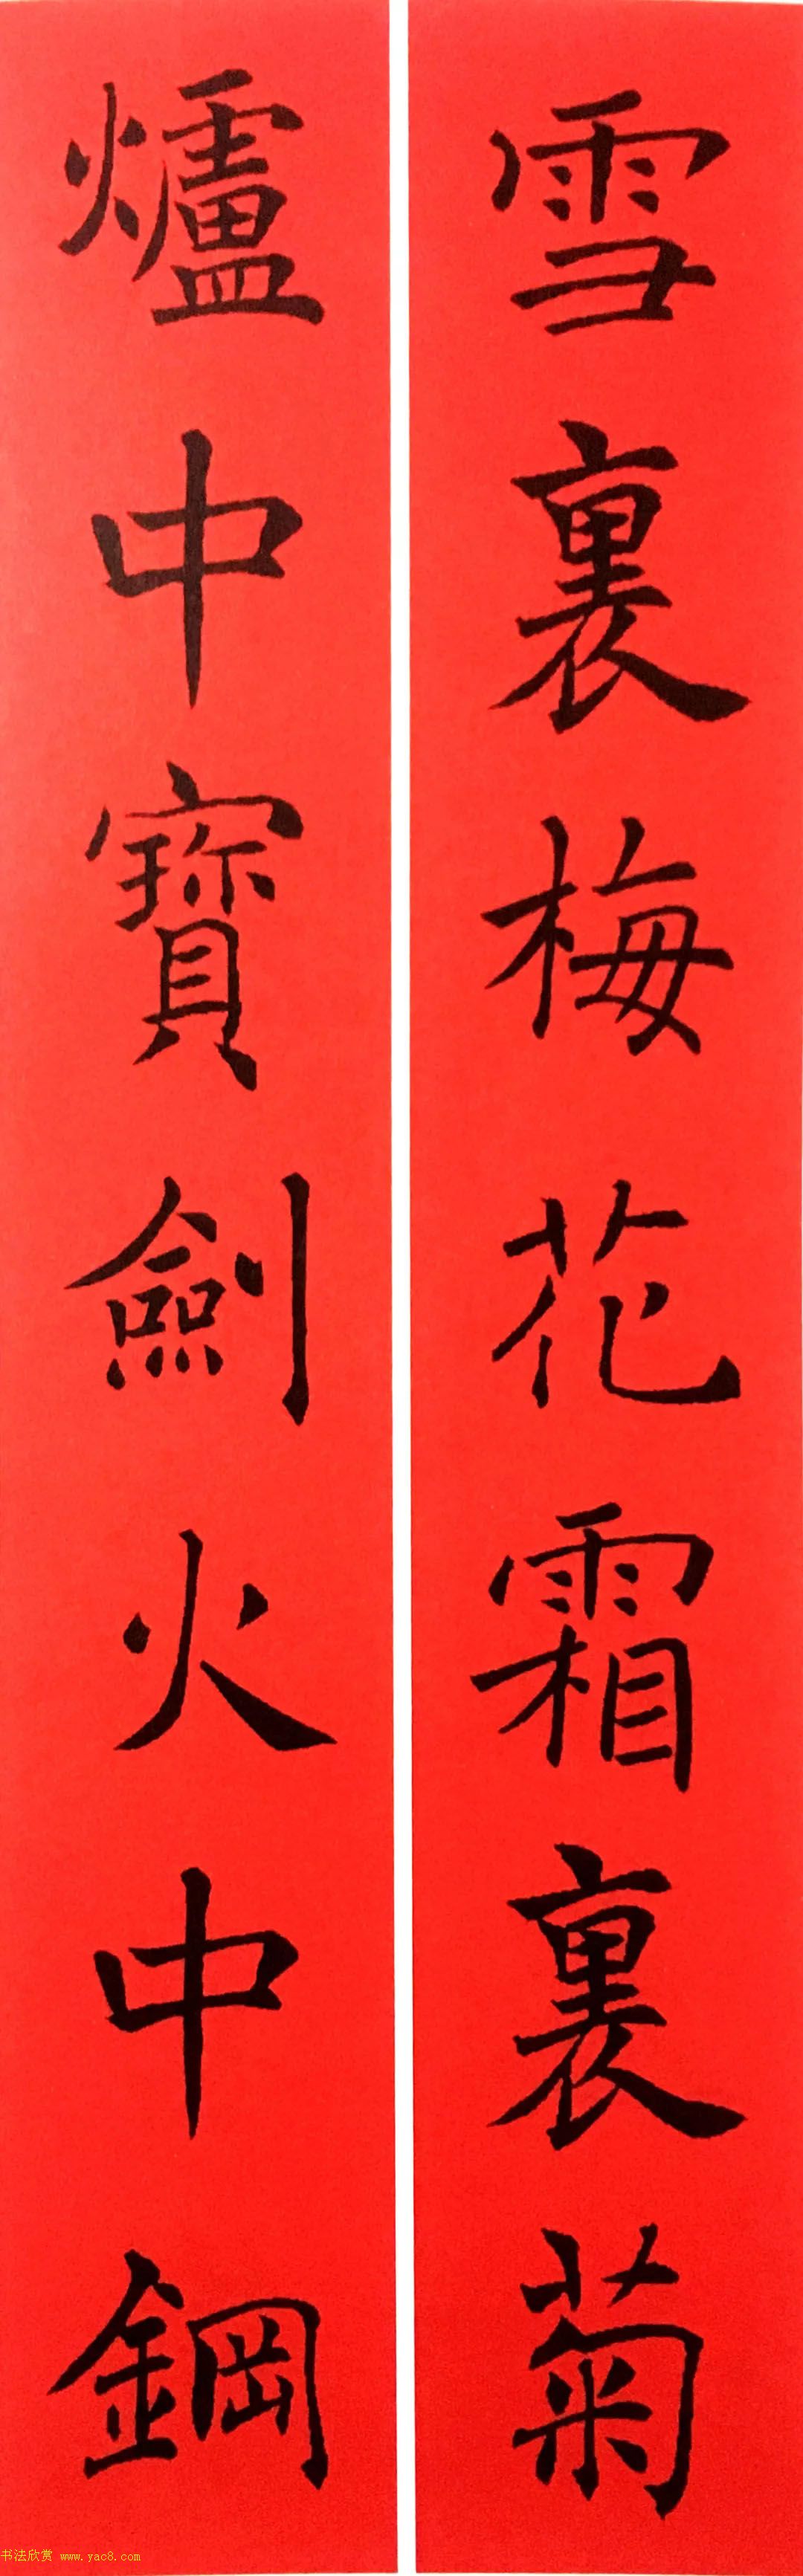 雪裏梅花霜裏菊
爐中寶劍火中鋼
书法欣赏 www.yac8.com